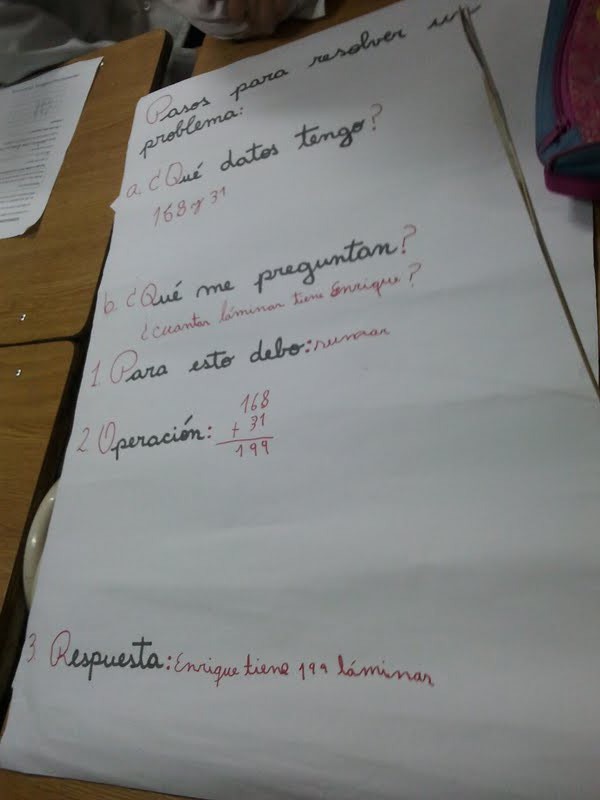 Pasos para resolver un
problema:
a. ¿Qué datos tengo?
168 y 31
b. ¿Qué me preguntan?
¿cuantas láminas tiene Enrique?
1. Para esto debo: sumar
2. Operación:
168
+ 31
199
3. Respuesta: Enrique tiene 199 láminas